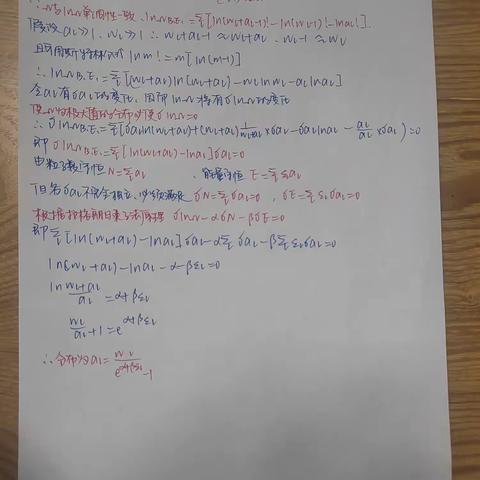 ∴Ω与lnΩ单调性一致. lnΩB.E.=Σ[ln(ωl+al-1)!-ln(ωl-1)!-lnal!].
假设 al≫1, ωl≫1 ∴ ωl+al-1≈ωl+al, ωl-1≈ωl
且可用斯特林公式 lnm!=m[ln(m-1)]
∴lnΩB.E.=Σ[(ωl+al)ln(ωl+al)-ωllnωl-allnal]
令al有δal的变化, 因而lnΩ将有δlnΩ的变化
使Ω为极大值的分布必使δlnΩ=0
∴δlnΩB.E.=Σ(δalln(ωl+al)+(ωl+al)1/(ωl+al)×δal-δallnal-al/al×δal)=0
即δlnΩB.E.=Σ[ln(ωl+al)-lnal]δal=0
由粒子数守恒 N=Σal, 能量守恒 E=Σεlal
但各δal不完全独立, 必须满足 δN=Σδal=0, δE=Σεlδal=0
根据拉格朗日乘子法原理 δlnΩ-αδN-βδE=0
即Σ[ln(ωl+al)-lnal]δal-αΣδal-βΣεlδal=0
ln(ωl+al)-lnal-α-βεl=0
ln(ωl+al)/al=α+βεl
ωl/al+1=e^(α+βεl)
∴分布为al=ωl/(e^(α+βεl)-1)